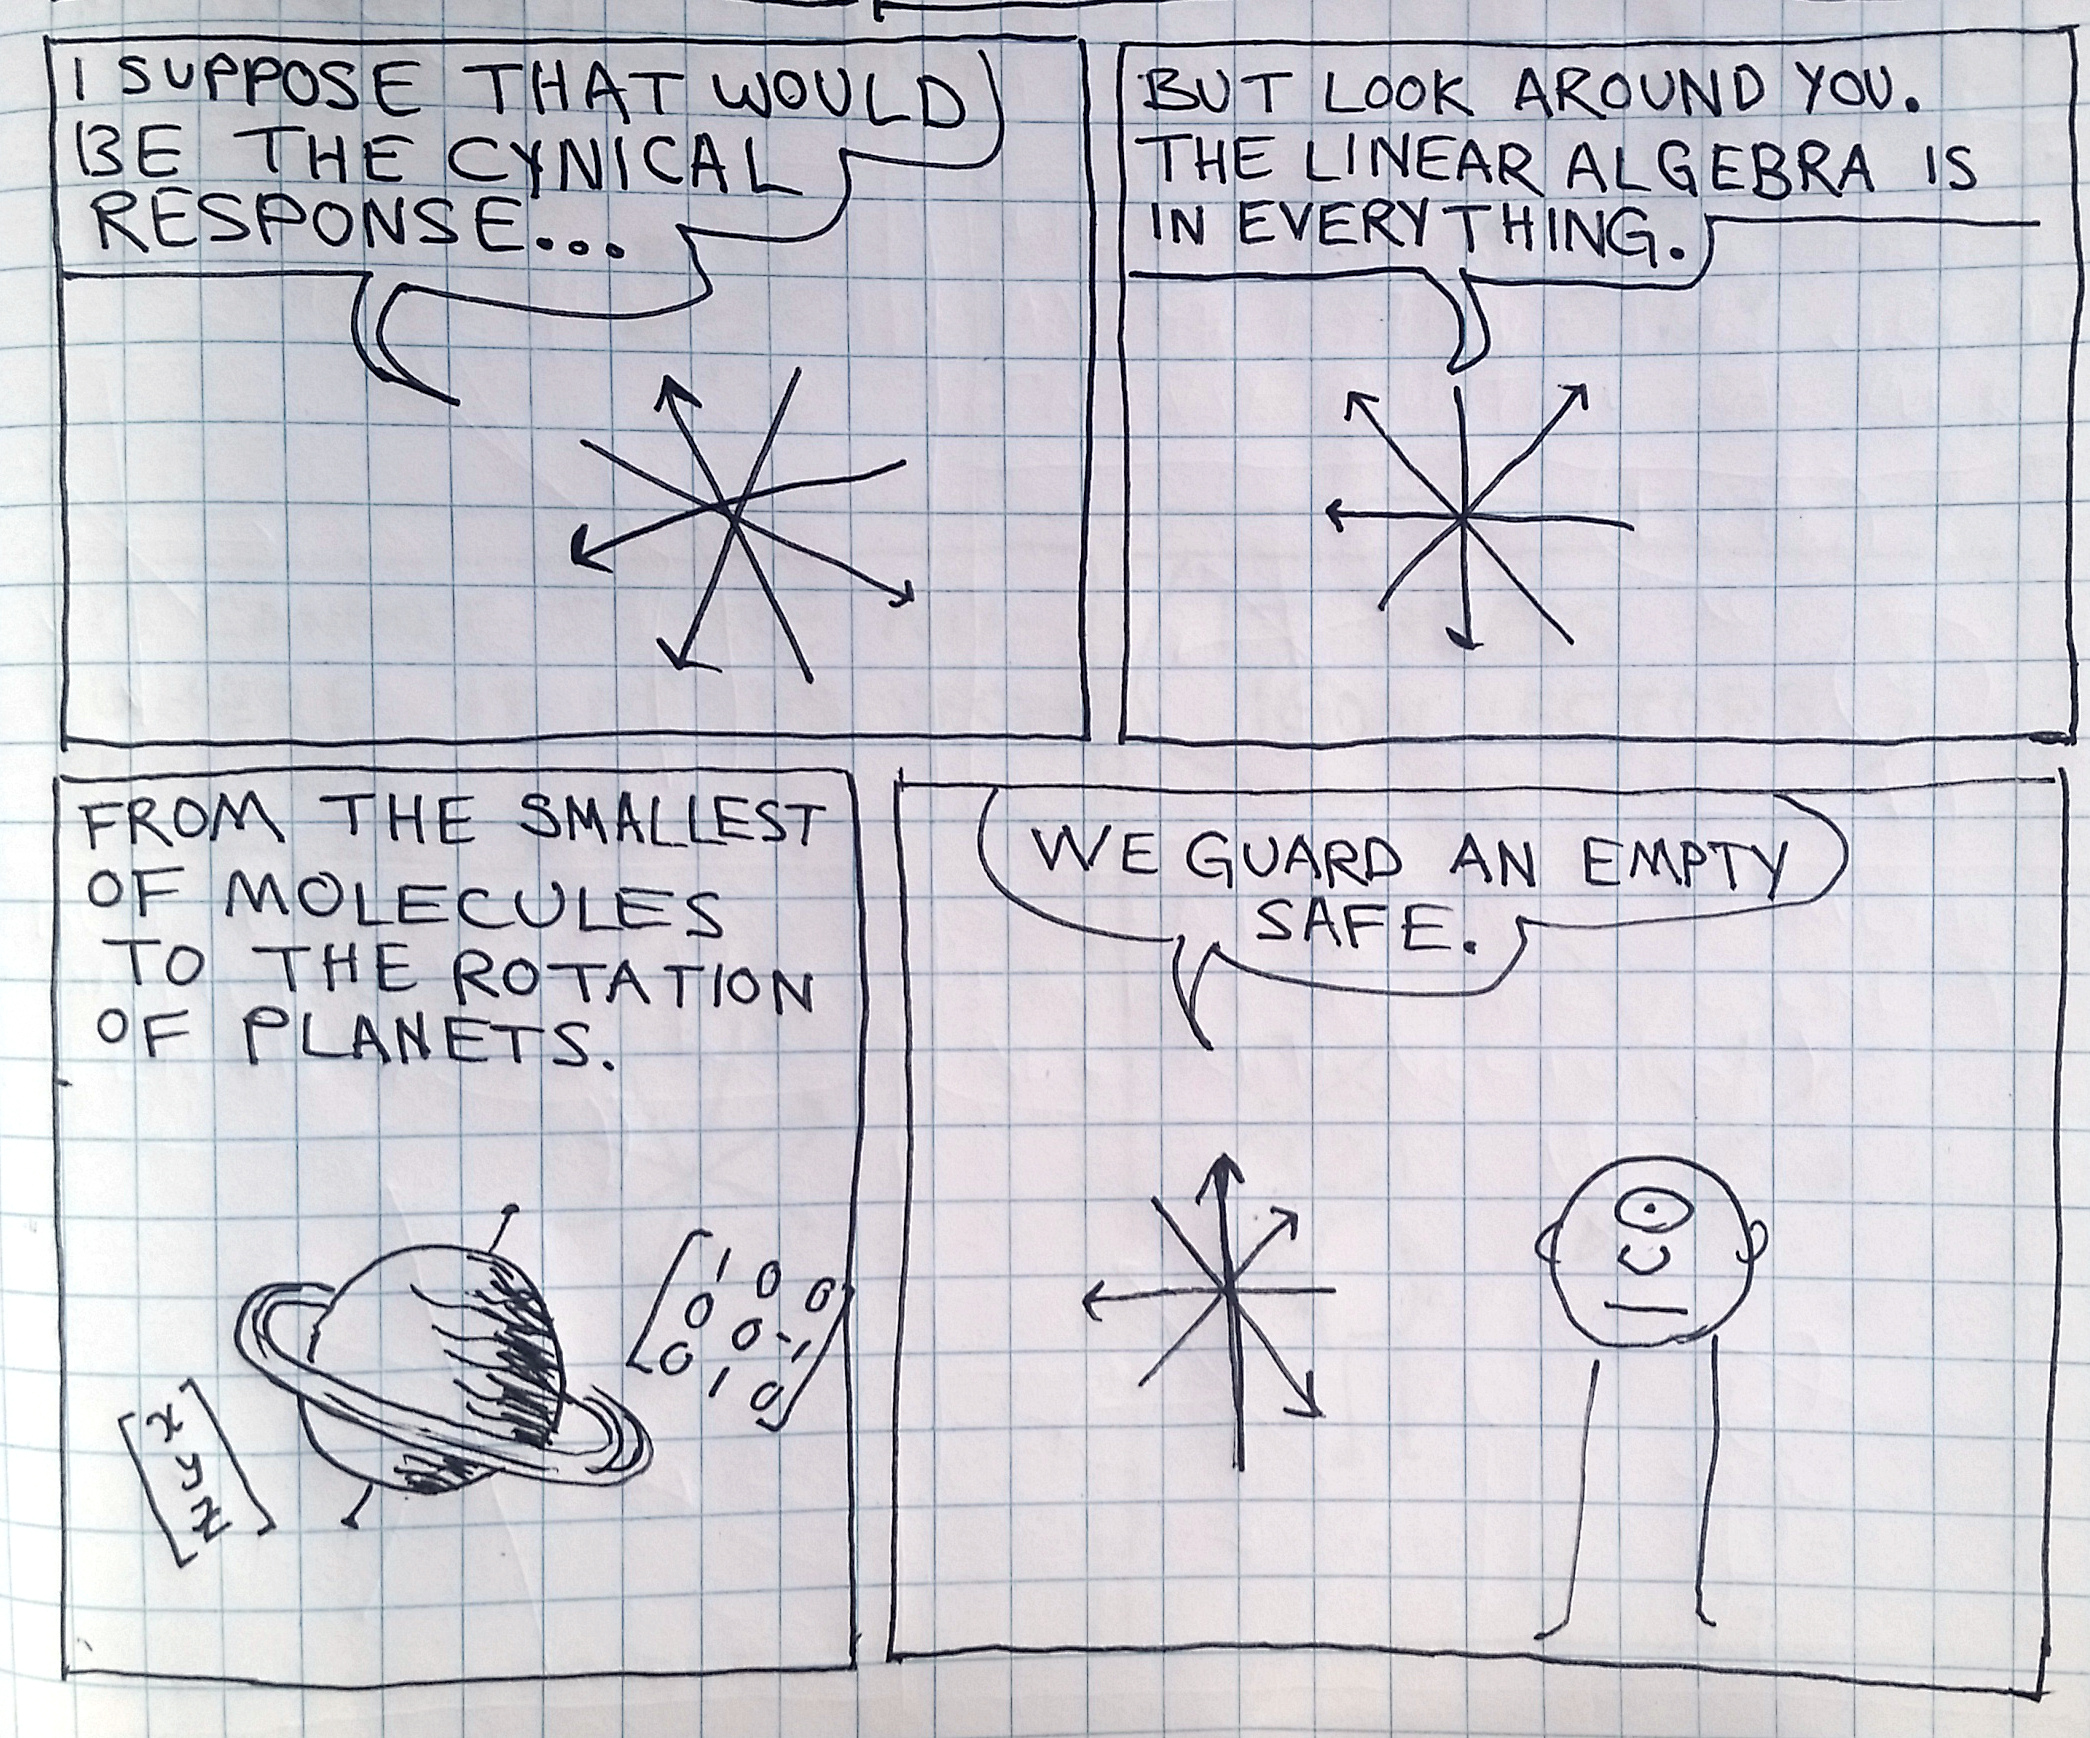 I SUPPOSE THAT WOULD
BE THE CYNICAL
RESPONSE...
BUT LOOK AROUND YOU.
THE LINEAR ALGEBRA IS
IN EVERYTHING.
FROM THE SMALLEST
OF MOLECULES
TO THE ROTATION
OF PLANETS.
1 0 0
0 0 -1
0 1 0
x
y
z
WE GUARD AN EMPTY
SAFE.